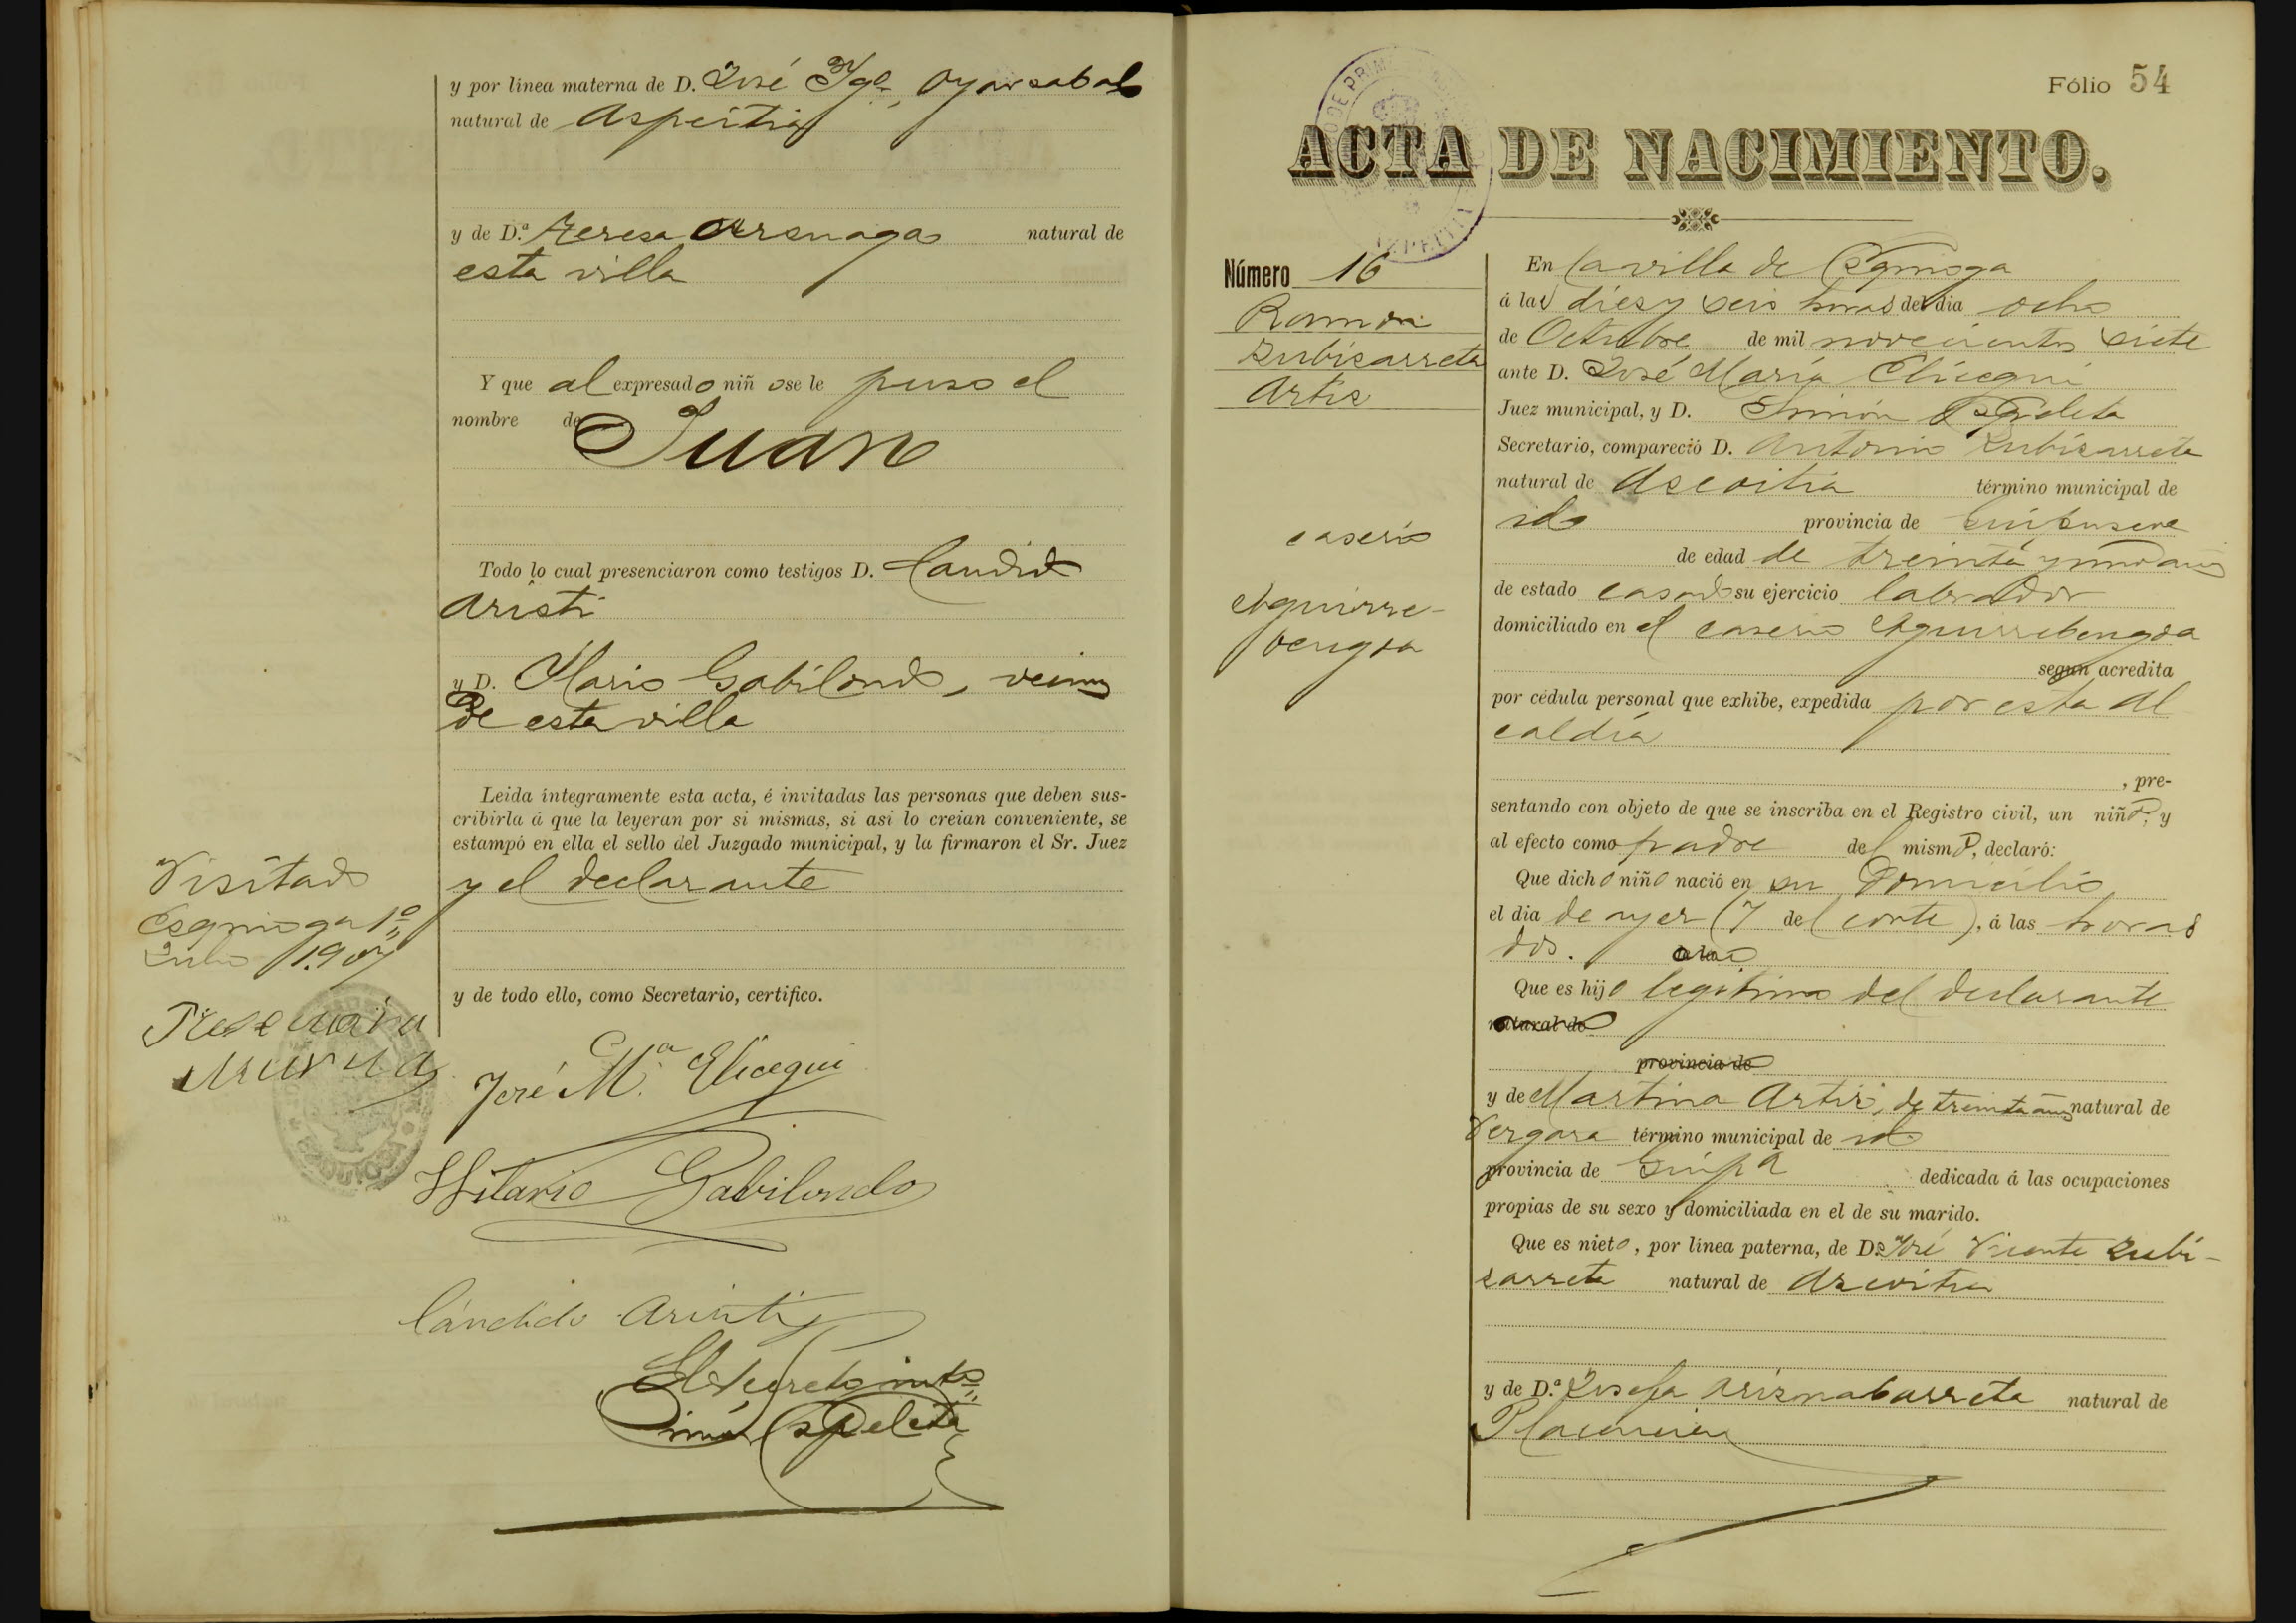 y por línea materna de D. José Igº Oyarzabal
natural de Aspeitia
y de D.ª Teresa Arsuaga natural de
esta villa
Y que al expresado niño se le puso el
nombre de
Juan
Todo lo cual presenciaron como testigos D. Candido
Aristi
y D. Ilario Gabilondo, vecinos
de esta villa
Leida íntegramente esta acta, é invitadas las personas que deben sus-
cribirla á que la leyeran por si mismas, si asi lo creian conveniente, se
estampó en ella el sello del Juzgado municipal, y la firmaron el Sr. Juez
y el declarante
y de todo ello, como Secretario, certifico.
Visitado
Esquioga 1º
Julio 1907
José María
José M.ª Elicegui
Hilario Gabilondo
Cándido Aristi
El Secretº
Simón Espeleta
Fólio 54
ACTA DE NACIMIENTO.
Número 16
Ramon
Zubisarreta
Artis
caserio
Aguirre-
bengoa
En la villa de Esquioga
á las dies y seis horas del dia ocho
de Octubre de mil novecientos siete
ante D. José María Elicegui
Juez municipal, y D. Simón Espeleta
Secretario, compareció D. Antonio Zubisarreta
natural de Ascoitia término municipal de
id provincia de Guipuscoa
de edad de treinta y un años
de estado casado su ejercicio labrador
domiciliado en el caserio Aguirrebengoa
segun acredita
por cédula personal que exhibe, expedida por esta Al
caldía
, pre-
sentando con objeto de que se inscriba en el Registro civil, un niño, y
al efecto como padre del mismo, declaró:
Que dicho niño nació en su domicilio,
el dia de ayer (7 del corte), á las horas
dos.
Que es hijo legitimo del declarante
natural de
provincia de
y de Martina Artis, de treinta años natural de
Vergara término municipal de id
provincia de Guipª dedicada á las ocupaciones
propias de su sexo y domiciliada en el de su marido.
Que es nieto, por línea paterna, de D. José Vicente Zubi-
sarreta natural de Azcoitia
y de D.ª Josefa Arismabarreta natural de
Placencia